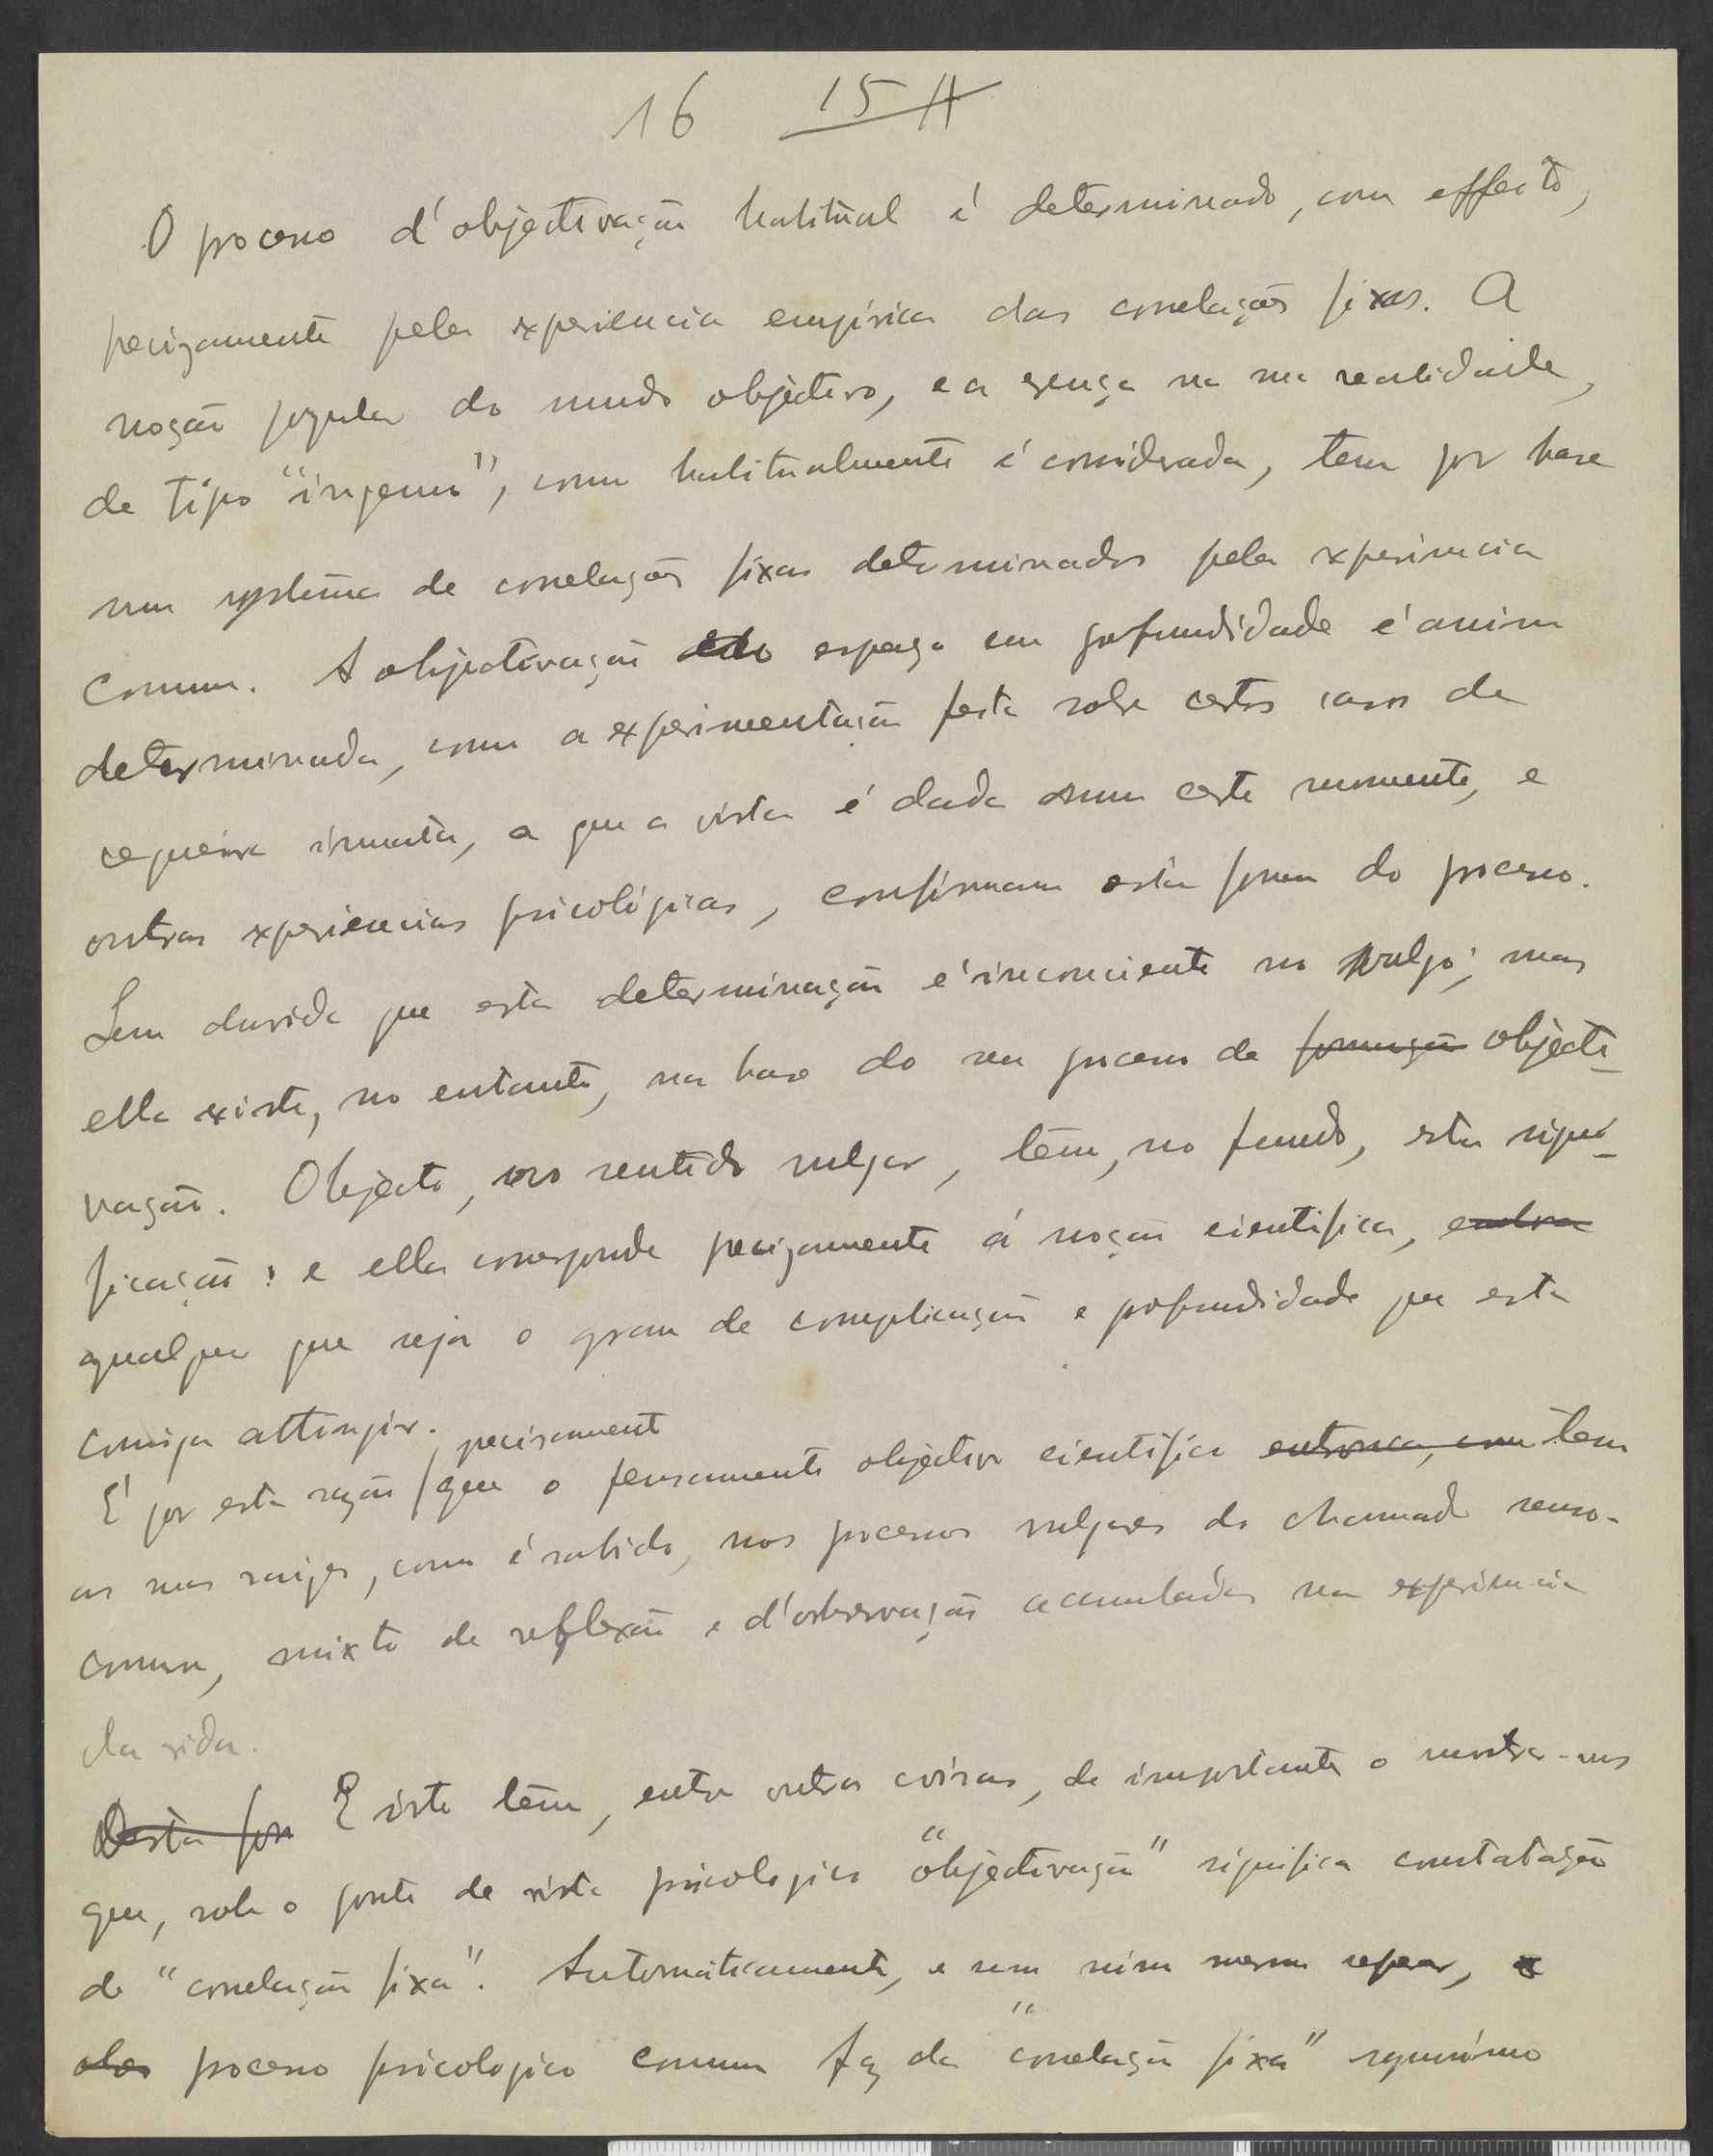 16 15 A
O processo d'objectivação habitual é determinado, com effeito,
precizamente pela experiencia empírica das correlações fixas. A
noção popular do mundo objectivo, e a crença na sua realidade,
de tipo "ingenuo", como habitualmente é considerada, tem por base
um systema de correlações fixas determinados pela experiencia
comum. A objectivação do espaço em profundidade é assim
determinada, como a experimentação feita sobre certos casos de
cegueira innata, a que a vista é dada num certo momento, e
outras experiencias psicológicas, confirmam esta forma do processo.
Sem duvida que esta determinação é inconciente no vulgo; mas
ella existe, no entanto, na base do seu processo de formação objecti-
vação. Objecto, no sentido vulgar, têm, no fundo, esta signi-
ficação: e ella corresponde precizamente á noção cientifica,
qualquer que seja o grau de complicação e profundidade que esta
consiga attingir.
precisamente
É por esta razão que o pensamento objectivo cientifico entronca, com tem
as suas raizes, como é sabido, nos processos vulgares do chamado senso-
comum, mixto de reflexão e d'observação accumuladas na experiencia
da vida.
Desta for E isto têm, entre outras coisas, de importante o mostrar-nos
que, sob o ponto de vista psicologico "objectivação" significa constatação
de "correlação fixa". Automaticamente, e sem nisso mesmo reparar, o
processo psicologico comum faz da "correlação fixa" synonimo